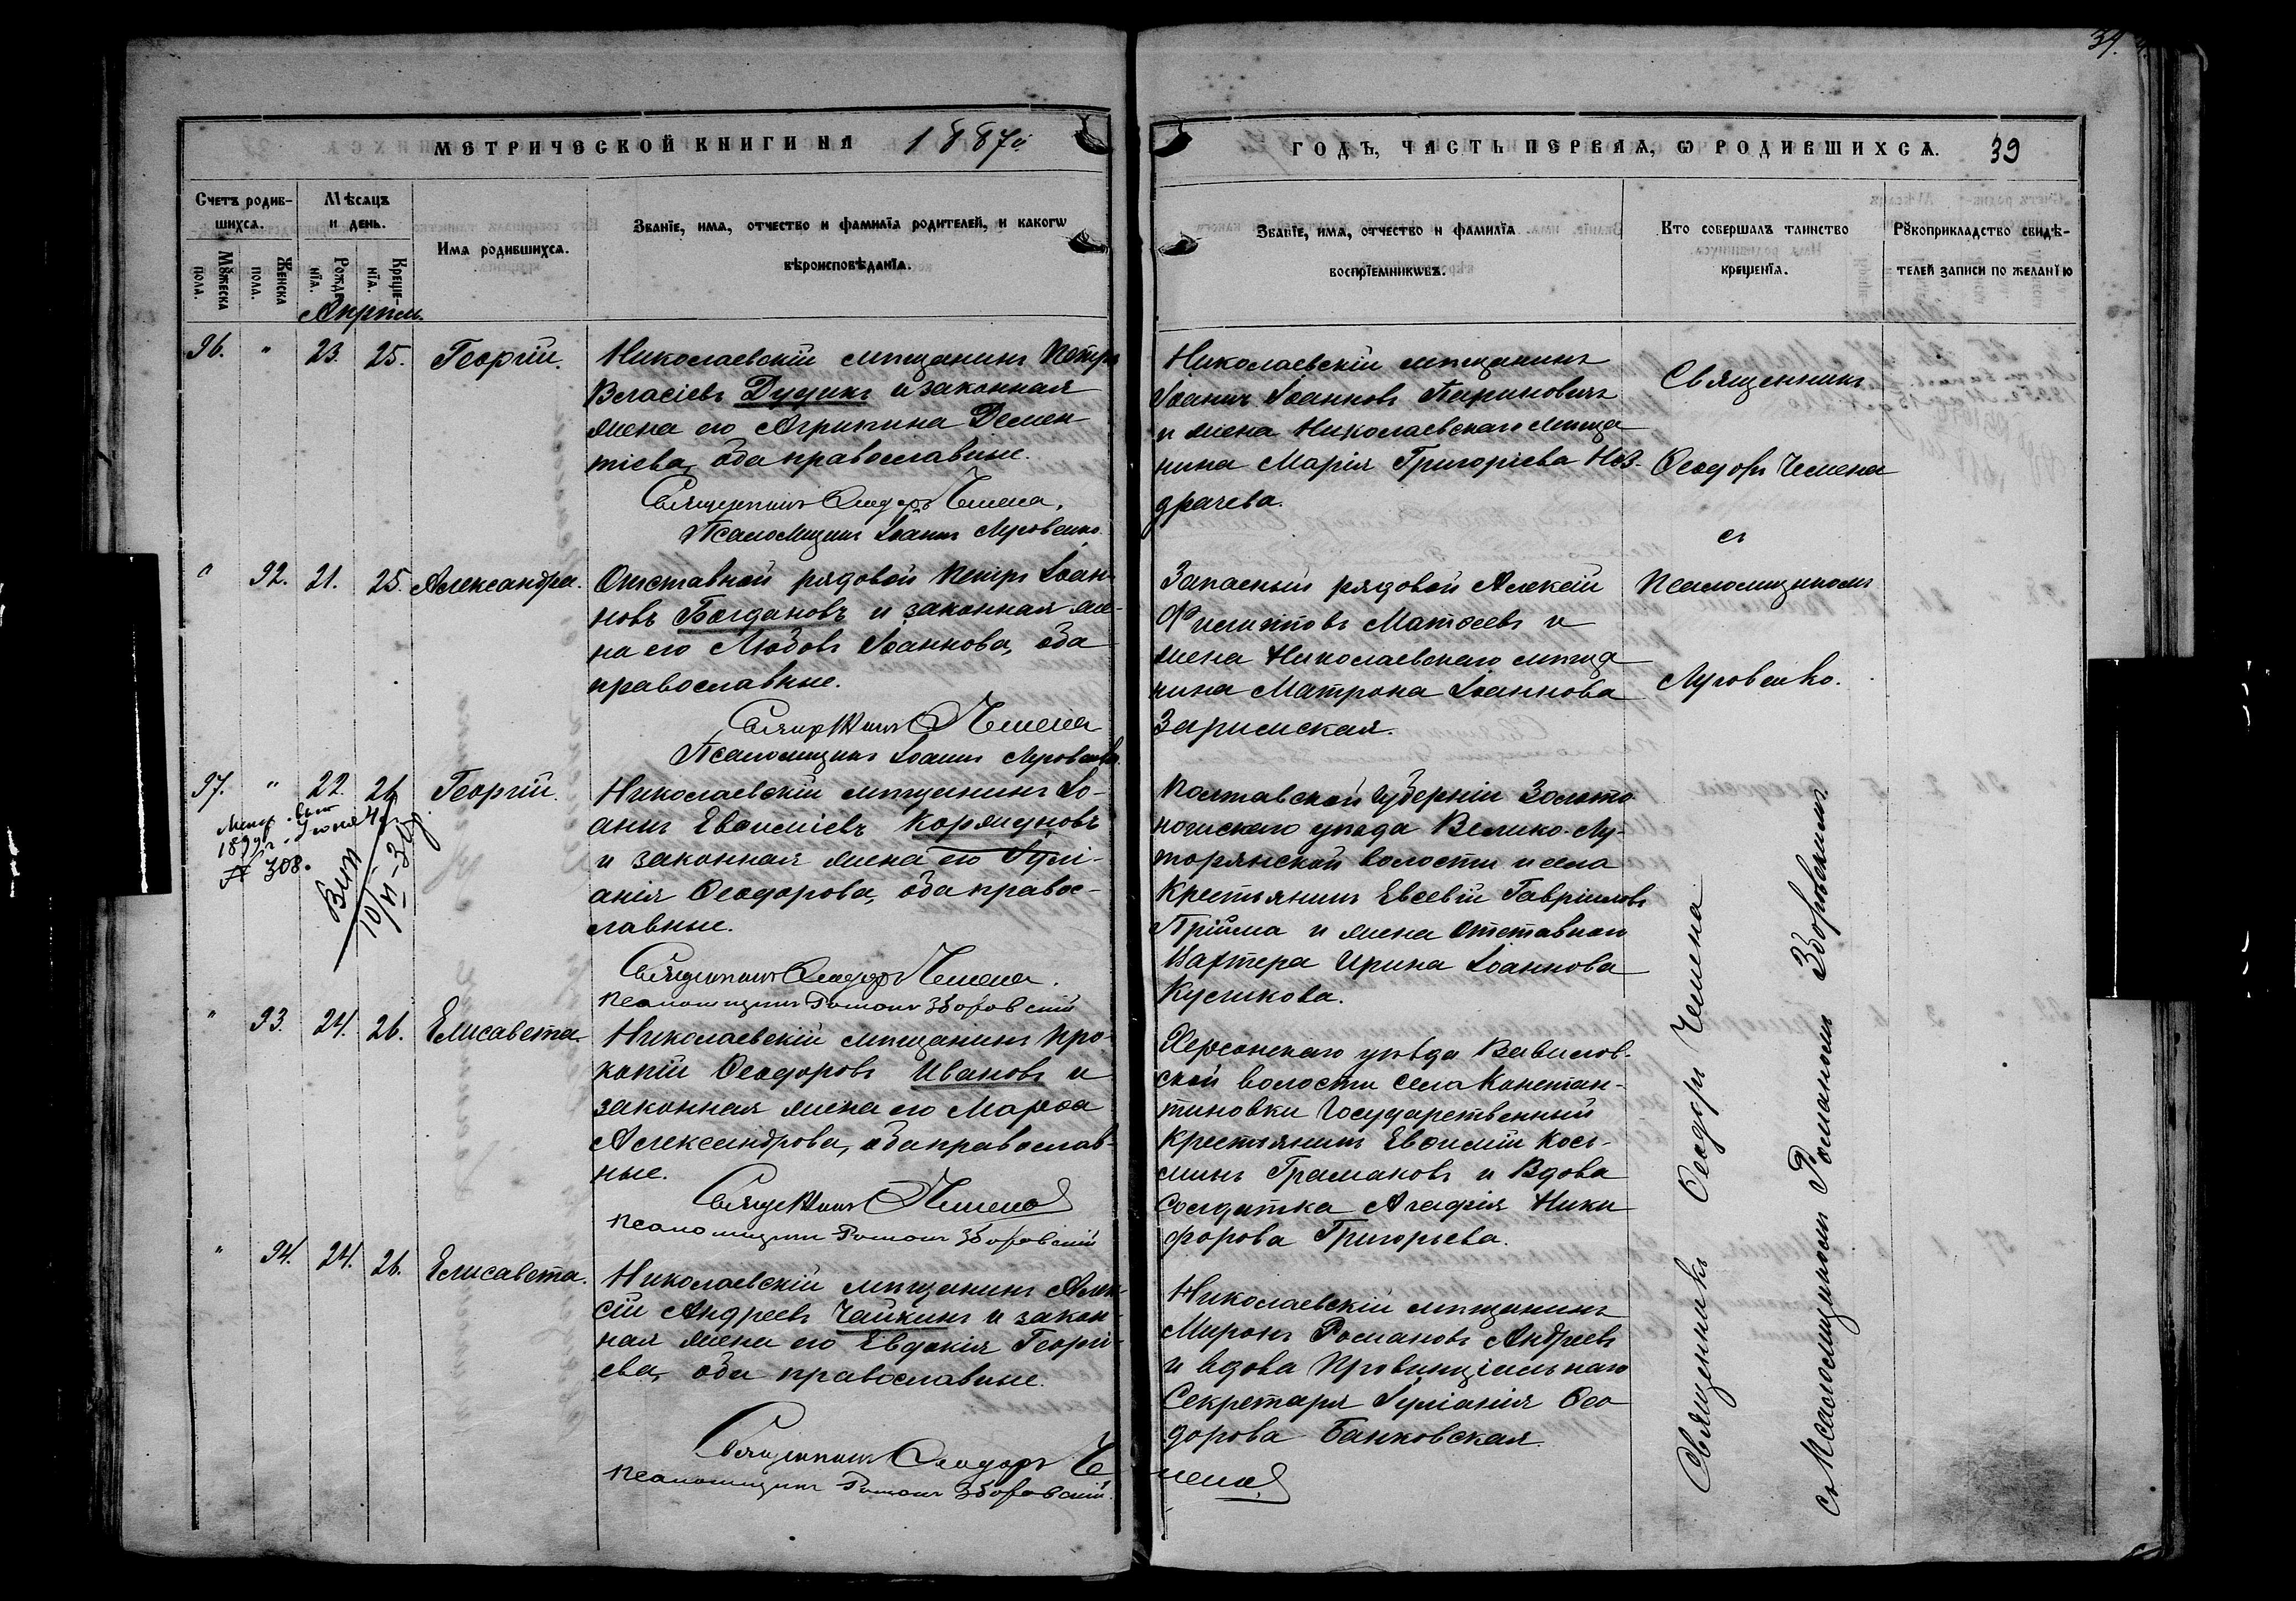 34.
МЕТРИЧЕСКОЙ КНИГИ НА 1887й
ГОДЪ, ЧАСТЬ ПЕРВАЯ, Ѡ РОДИВШИХСѦ. 39
Счетъ родив-
шихсѧ.
Мꙋжеска
пола.
Женска
пола.
Мѣсѧцъ
и день.
Рожде-
нїѧ.
Креще-
нїѧ.
Имѧ родившихсѧ.
Званїе, имѧ, отчество и фамилїѧ родителей, и какогѡ
вѣроисповѣданїѧ.
Званїе, имѧ, отчество и фамилїѧ
воспрїемникѡвъ.
Кто совершалъ таинство
крещенїѧ.
Рꙋкоприкладство свидѣ-
телей записи по желанїю
Апрѣль
96. " 23. 25. Георгій.
Николаевскій мѣщанинъ Петръ
Власіевъ Дудинъ и законная
жена его Агрипина Демен-
тіева, оба православные.
Священникъ Ѳеодоръ Чемена.
Псаломщикъ Іоаннъ Луговенко.
Николаевскій мѣщанинъ
Іоаннъ Іоанновъ
и жена Николаевскаго мѣща
нина Марія Григоріева
драчева.
Священникъ
Ѳеодоръ Чемена
съ
Псаломщикомъ
Луговенко.
" 92. 21. 25. Александра.
Отставной рядовой Петръ Іоан-
новъ Богдановъ и законная же-
на его Любовь Іоаннова, оба
православные.
Священникъ Ѳ Чемена
Псаломщикъ Іоаннъ Луговенко.
Запасный рядовой Алексій
Филипповъ Матѳеевъ и
жена Николаевскаго мѣща
нина Матрона Іоаннова
Заримская.
97. " 22. 26. Георгій.
1899 г. Іюня 4
№ 308.
Вып
10/VI-39
Николаевскій мѣщанинъ Іо-
аннъ Евѳиміевъ Коржуновъ
и законная жена его Іулі-
анія Ѳеодорова, оба правос-
лавные.
Священникъ Ѳеодоръ Чемена.
Псаломщикъ Романъ Зборовскій
Полтавской Губерніи Золото
ношскаго уѣзда Велико-Лу-
торянской волости и села
Крестьянинъ Евсевій Гавріиловъ
Прійма и жена отставнаго
Вахтера Ирина Іоаннова
Кусликова.
" 93. 24. 26. Елисавета.
Николаевскій мѣщанинъ Про-
копій Ѳеодоровъ Ивановъ и
законная жена его Марѳа
Александрова, оба православ-
ные.
Священникъ Ѳ Чемена
Псаломщикъ Романъ Зборовскій
Херсонскаго уѣзда Вавилов-
ской волости села Констан-
тиновки Государственный
Крестьянинъ Евѳимій Кось-
минъ Грамаковъ и Вдова
Солдатка Агафія Ники
форова Григорьева.
" 94. 24. 26. Елисавета.
Николаевскій мѣщанинъ Алек-
сій Андреевъ Чайкинъ и закон-
ная жена его Евдокія Георгі-
ева, оба православные.
Священникъ Ѳеодоръ Че
мена
Псаломщикъ Романъ Зборовскій.
Николаевскій мѣщанинъ
Миронъ Романовъ Андреевъ
и вдова Провинціальнаго
Секретаря Іуліанія Ѳео
дорова Банковская.
Священникъ Ѳеодоръ Чемена
съ Псаломщикомъ Романомъ Зборовскимъ.